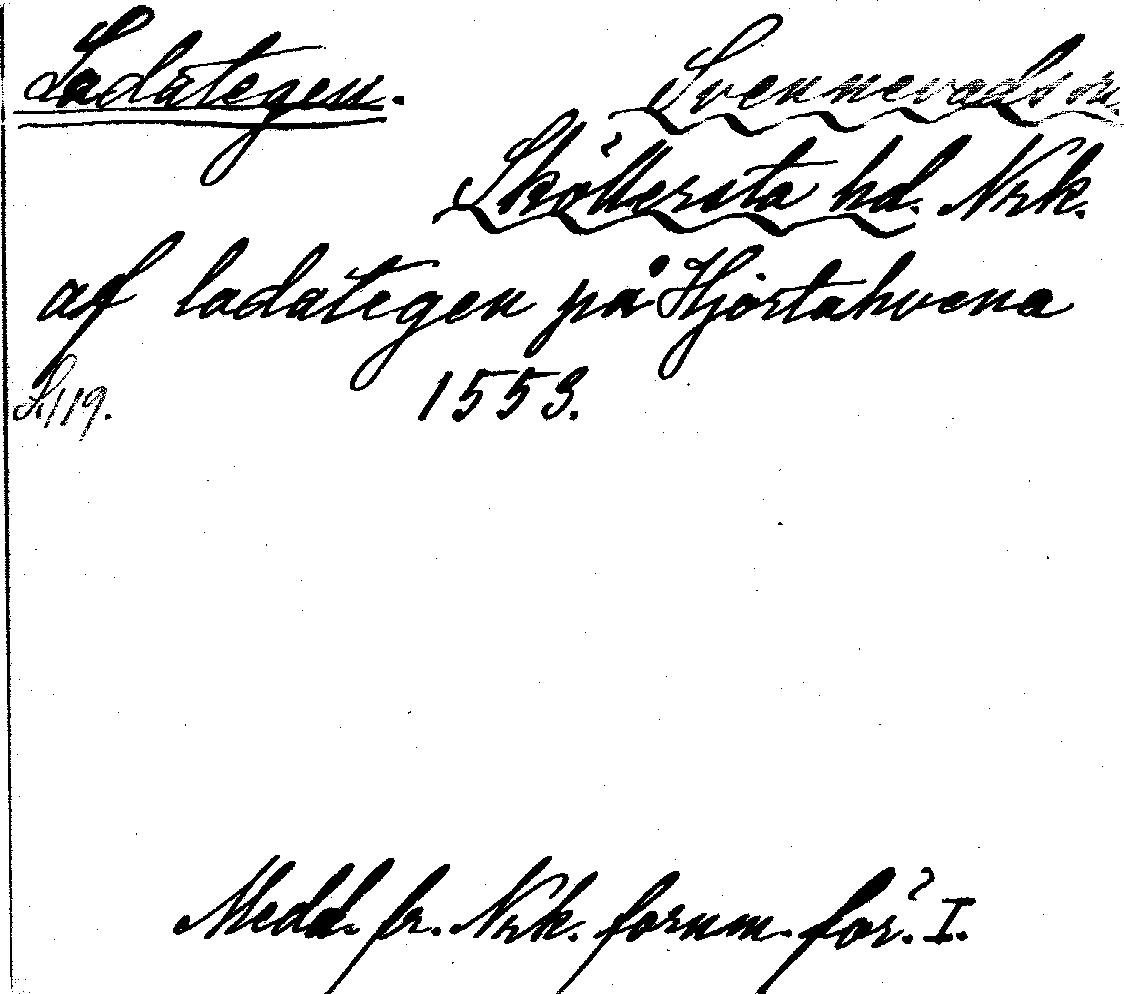 Ladategen. Svennevads sn.
Sköllersta hd. Nrk.
af ladategen på Hjortahvena
S. 119. 1553.
Medd. fr. Nrk. fornm. för. I.